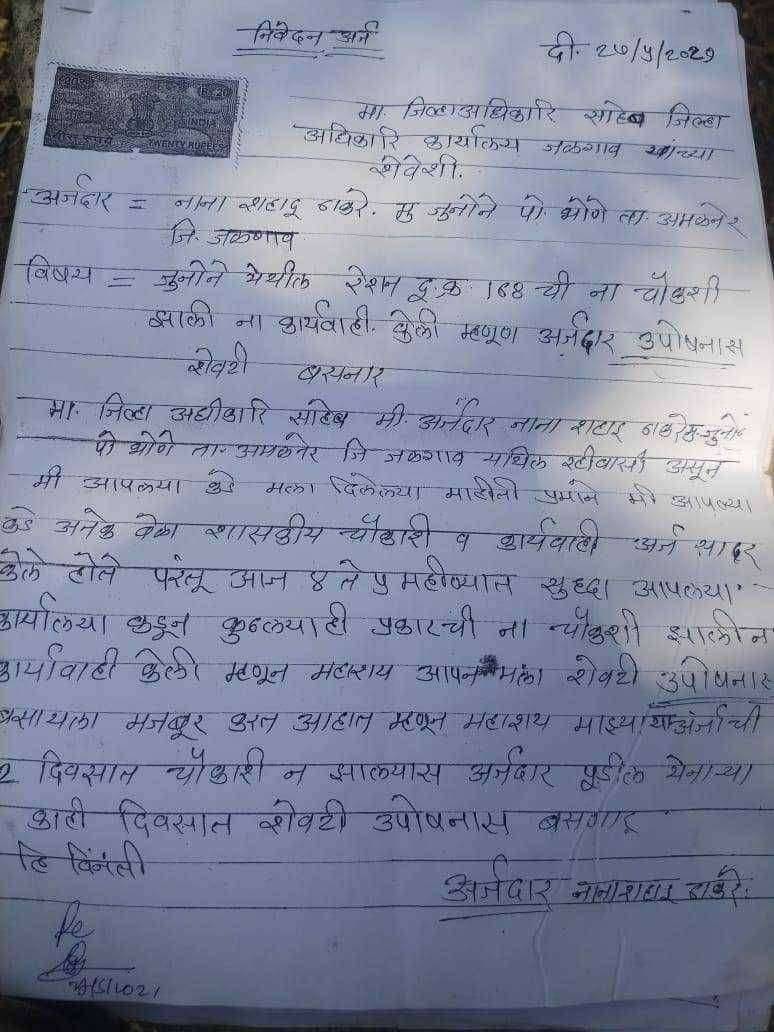 निवेदन अर्ज
दी. २७/५/२०२१
INDIA
TWENTY RUPEES
मा. जिल्हाअधिकारि साहेब जिल्हा
अधिकारि कार्यालय जळगाव यांच्या
शेवेशी.
अर्जदार = नाना शहादू ठाकरे. मु जुनोने पो भोणे ता. अमळनेर
जि. जळगाव
विषय = जुनोने येथील रेशन दू.क्र. १६४ ची ना चौकशी
झाली ना कार्यवाही. केली म्हणूण अर्जदार उपोषनास
शेवटी बसनार
मा. जिल्हा अधीकारि साहेब मी. अर्जदार नाना शहादू ठाकरे मु-जुनोने
पो भोणे ता. अमळनेर जि जळगाव यथिल रहीवासी असून
मी आपलया कडे मला दिलेल्या माहीती प्रमाने मी आपल्या
कडे अनेक वेळा शासकीय चौकशी व कार्यवाही अर्ज सादर
केले होते परंतू आज ४ ते ५ महीन्यात सुद्धा आपलया
कार्यालया कडून कुठल्याही प्रकारची ना चौकशी झाली न
कार्यावाही केली म्हणून महाशय आपन मला शेवटी उपोषनास
बसायला मजबूर करत आहात म्हणून महाशय माझ्या या अर्जाची
२ दिवसात चौकशी न झाल्यास अर्जदार पूढील येनाऱ्या
काही दिवसात शेवटी उपोषनास बसणार
हि विनंती
अर्जदार नाना शहादू ठाकरे.